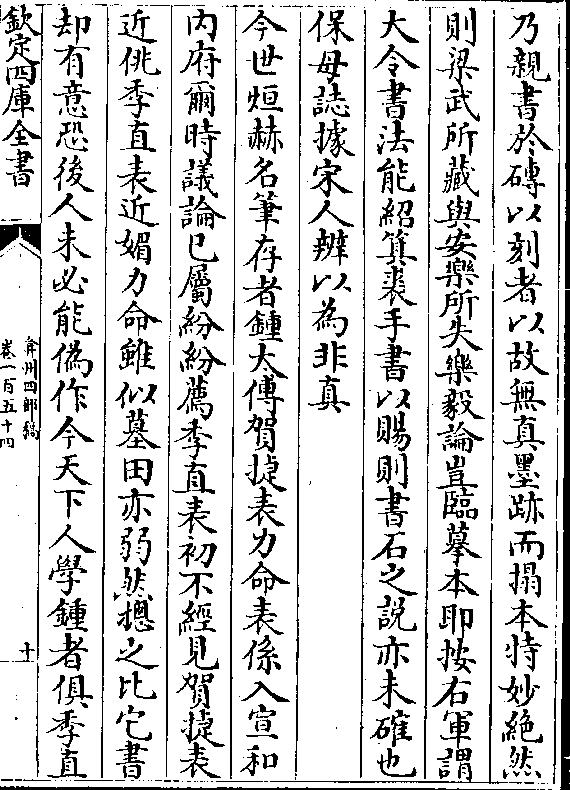 乃親書於磚以刻者以故無真墨跡而搨本特妙絶然
則梁武所藏與安樂所失樂毅論豈臨摹本耶按右軍謂
大令書法能紹箕裘手書以賜則書石之説亦未確也
保母誌據宋人辨以為非真
今世烜赫名筆存者鍾太傅賀捷表力命表係入宣和
内府爾時議論已屬紛紛薦季直表初不經見賀捷表
近佻季直表近媚力命雖似墓田亦弱然摠之比它書
却有意恐後人未必能偽作今天下人學鍾者俱季直
欽定四庫全書
弇州四部稿
卷一百五十四
十